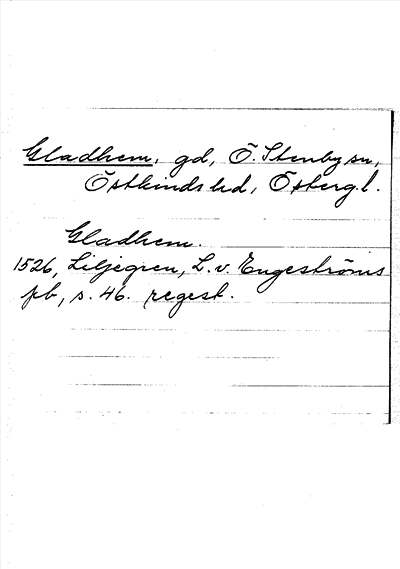 Gladhem, gd, Ö. Stenby sn,
Östkinds hd, Österg.l.
Gladhem.
1526, Liljegren, L. v. Engeströms
pb, s. 46. regest.